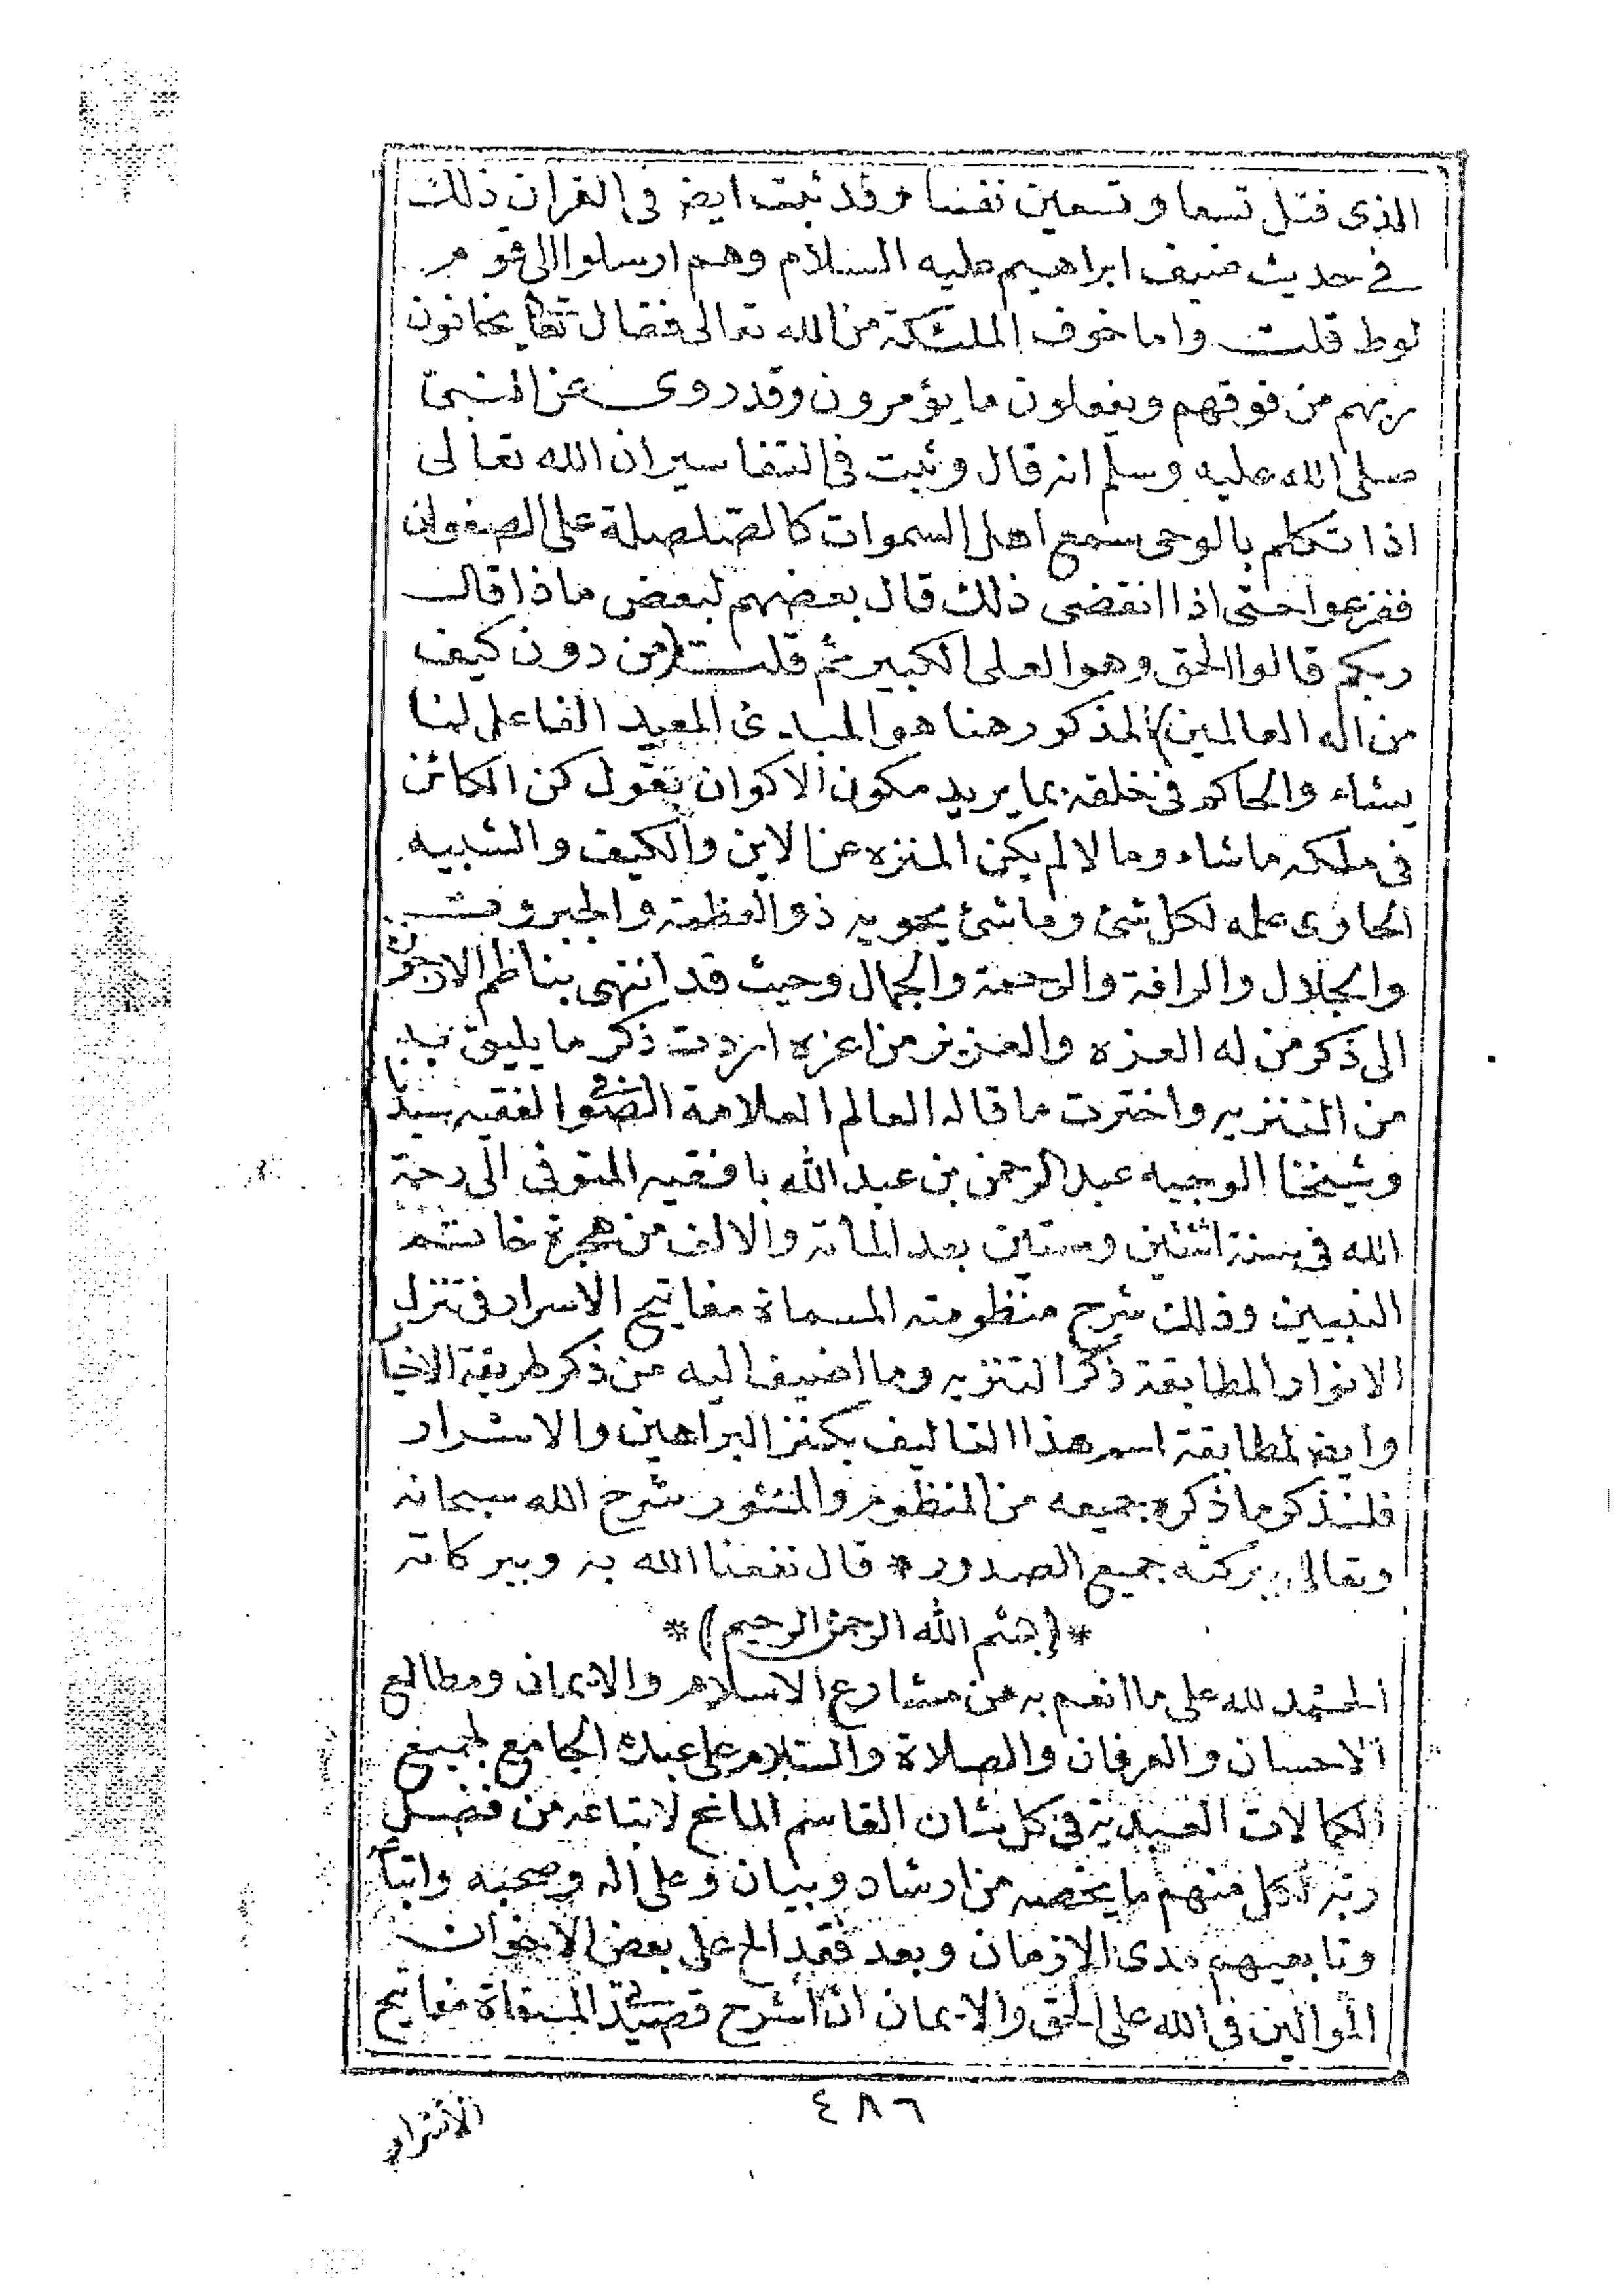 الذى قتل تسعا وتسعين نفسا وقد ثبت ايض فى القران ذلك
فى حديث ضيف ابراهيم عليه السلام وهم ارسلوا الى قوم
لوط قلت واما خوف الملئكة من الله تعالى فقال تعا يخافون
ربهم من فوقهم ويفعلون ما يؤمرون وقد روى عن النبى
صلى الله عليه وسلم انه قال وثبت فى التفاسير ان الله تعالى
اذا تكلم بالوحى سمع اهل السموات كالصلصلة على الصفوان
ففزعوا حتى اذا انقضى ذلك قال بعضهم لبعض ماذا قال
ربكم قالوا الحق وهو العلى الكبير ثم قلت (من دون كيف
من اله العالمين) المذكور هنا هو المبدئ المعيد الفاعل لما
يشاء والحاكم فى خلقه بما يريد مكون الاكوان بقول كن الكائن
فى ملكه ما شاء وما لا لم يكن المنزه عن الاين والكيف والشبيه
الحاوى علمه لكل شئ وما شئ يحويه ذو العظمة والجبروت
والجلال والرافة والرحمة والجمال وحيث قد انتهى بنا نظم الارجوزة
الى ذكر من له العزه والعزيز من اعزه اردت ذكر ما يليق به
من التنزيه واخترت ما قاله العالم العلامة الصوفى الفقيه سيدنا
وشيخنا الوجيه عبد الرحمن بن عبد الله بافقيه المتوفى الى رحمة
الله فى سنة اثنتين وستين بعد المائة والالف من هجرة خاتم
النبيين وذلك شرح منظومته المسماة مفاتيح الاسرار فى تنزل
الانوار المطابقة ذكر التنزيه وما اضيف اليه من ذكر طريقة الاخيا
وايض لمطابقة اسم هذا التاليف بكنز البراهين والاسرار
فلنذكر ما ذكره جميعه من المنظوم والمنثور شرح الله سبحانه
وتعالى ببركته جميع الصدور * قال نفعنا الله به وببركاته
*(بسم الله الرحمن الرحيم)*
الحمد لله على ما انعم به من مشارع الاسلام والايمان ومطالع
الاحسان والعرفان والصلاة والسلام على عبدك الجامع لجميع
الكمالات العبدية فى كل شان القاسم المانح لاتباعه من فضل
ربه لكل منهم ما يخصه من ارشاد وبيان وعلى اله وصحبه واتبا
وتابعيهم مدى الازمان وبعد فقد الح على بعض الاخوان
الموالين فى الله على الحق والايمان ان اشرح قصيدتى المسماة مفاتيح
٤٨٦
الاسرار